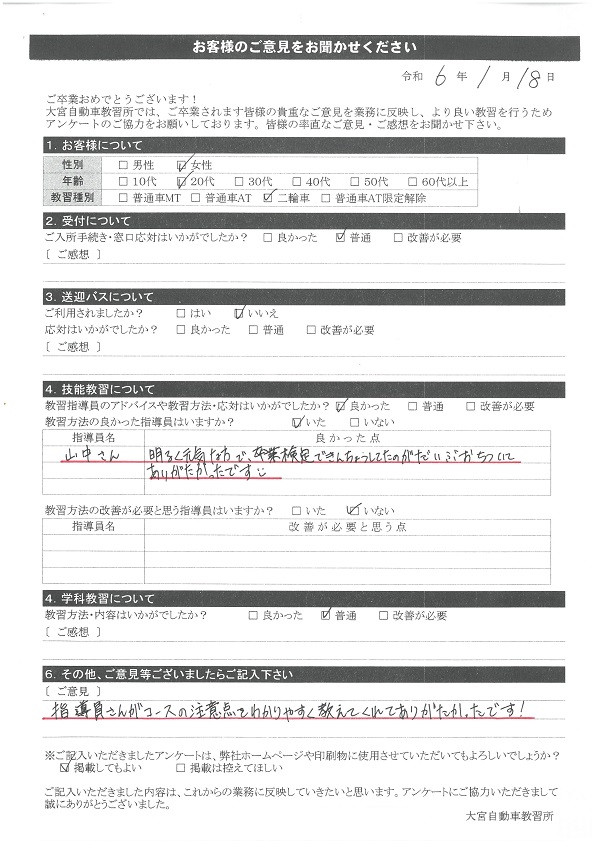 お客様のご意見をお聞かせください
令和 6 年 1 月 18 日
ご卒業おめでとうございます！
大宮自動車教習所では、ご卒業されます皆様の貴重なご意見を業務に反映し、より良い教習を行うため
アンケートのご協力をお願いしております。皆様の率直なご意見・ご感想をお聞かせ下さい。
1. お客様について
性別 □ 男性 ☑ 女性
年齢 □ 10代 ☑ 20代 □ 30代 □ 40代 □ 50代 □ 60代以上
教習種別 □ 普通車MT □ 普通車AT ☑ 二輪車 □ 普通車AT限定解除
2. 受付について
ご入所手続き・窓口応対はいかがでしたか？ □ 良かった ☑ 普通 □ 改善が必要
[ ご感想 ]
3. 送迎バスについて
ご利用されましたか？ □ はい ☑ いいえ
応対はいかがでしたか？ □ 良かった □ 普通 □ 改善が必要
[ ご感想 ]
4. 技能教習について
教習指導員のアドバイスや教習方法・応対はいかがでしたか？ ☑ 良かった □ 普通 □ 改善が必要
教習方法の良かった指導員はいますか？ ☑ いた □ いない
指導員名 良かった点
山中さん 明るく元気な方で、卒業検定できんちょうしてたのがだいぶおちついて
ありがたかったです
教習方法の改善が必要と思う指導員はいますか？ □ いた ☑ いない
指導員名 改善が必要と思う点
4. 学科教習について
教習方法・内容はいかがでしたか？ □ 良かった ☑ 普通 □ 改善が必要
[ ご感想 ]
6. その他、ご意見等ございましたらご記入下さい
[ ご意見 ]
指導員さんがコースの注意点をわかりやすく教えてくれてありがたかったです！
※ご記入いただきましたアンケートは、弊社ホームページや印刷物に使用させていただいてもよろしいでしょうか？
☑ 掲載してもよい □ 掲載は控えてほしい
ご記入いただきました内容は、これからの業務に反映していきたいと思います。アンケートにご協力いただきまして
誠にありがとうございました。
大宮自動車教習所